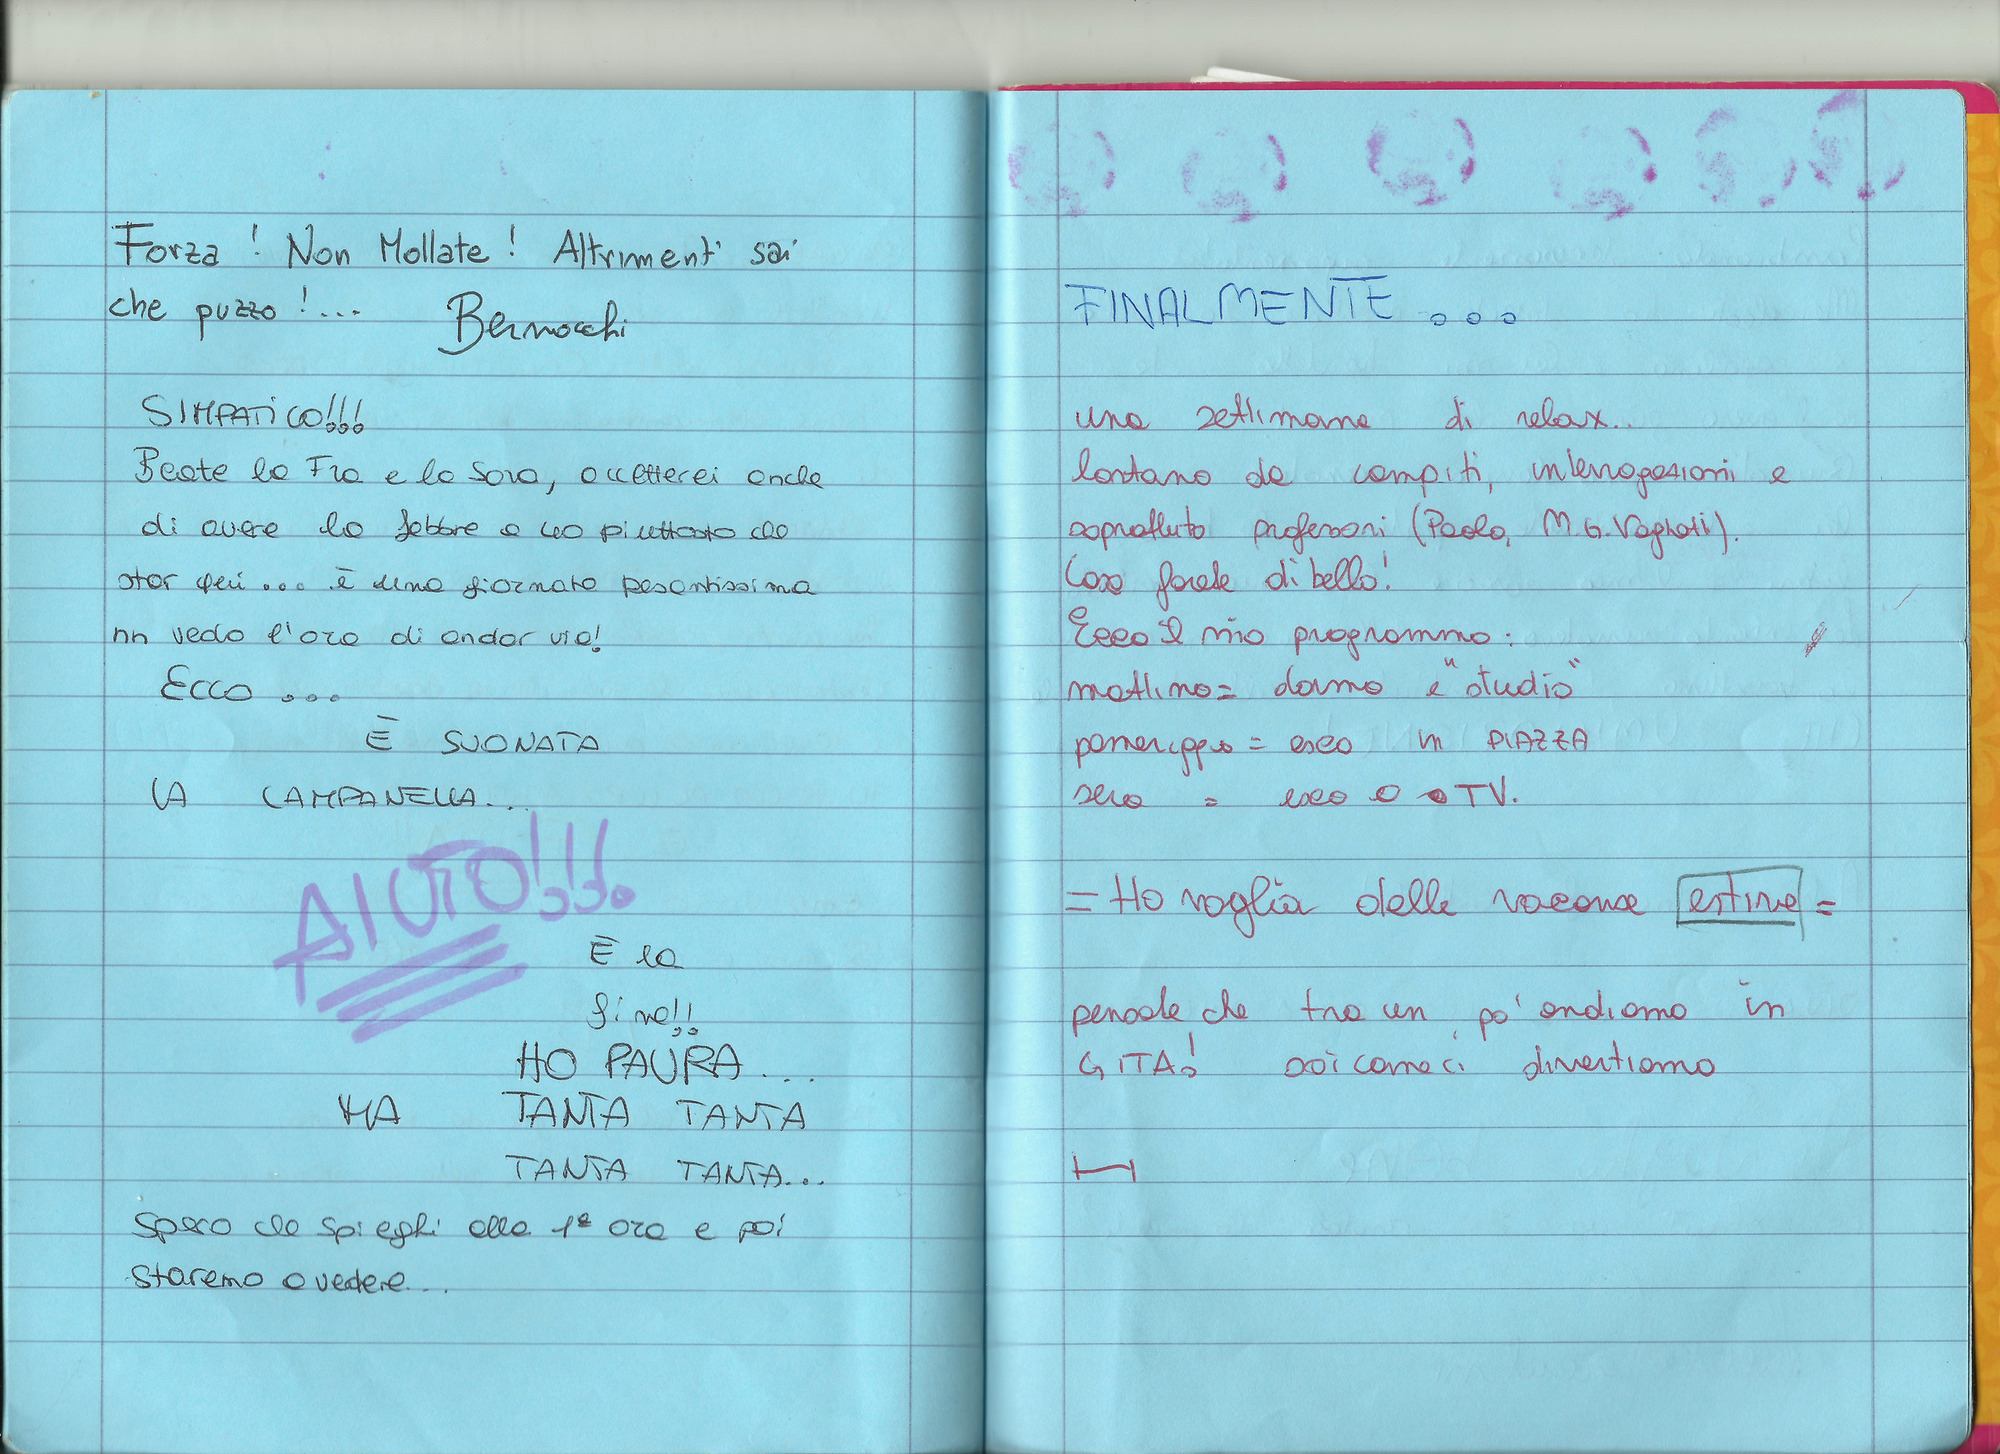 Forza! Non Mollate! Altrimenti sai
che puzzo!...
Bernocchi
SIMPATICO!!!
Beate la Fra e la Sara, accetterei anche
di avere la febbre a 40 piuttosto che
star qui... è una giornata pesantissima
nn vedo l'ora di andar via!
Ecco ...
È SUONATA
LA CAMPANELLA...
AIUTO!!!
È la
fine!!
HO PAURA...
MA TANTA TANTA
TANTA TANTA...
Spero che spieghi alla 1ª ora e poi
staremo a vedere...
FINALMENTE ...
una settimana di relax..
lontano da compiti, interrogazioni e
soprattutto professori (Paola, M.G. Vagnoti).
Cosa farete di bello!
Ecco il mio programma:
mattino= dormo e "studio"
pomeriggio = esco in PIAZZA
sera = esco o TV.
= Ho voglia delle vacanze estive =
pensate che tra un po' andiamo in
GITA! sai come ci divertiamo